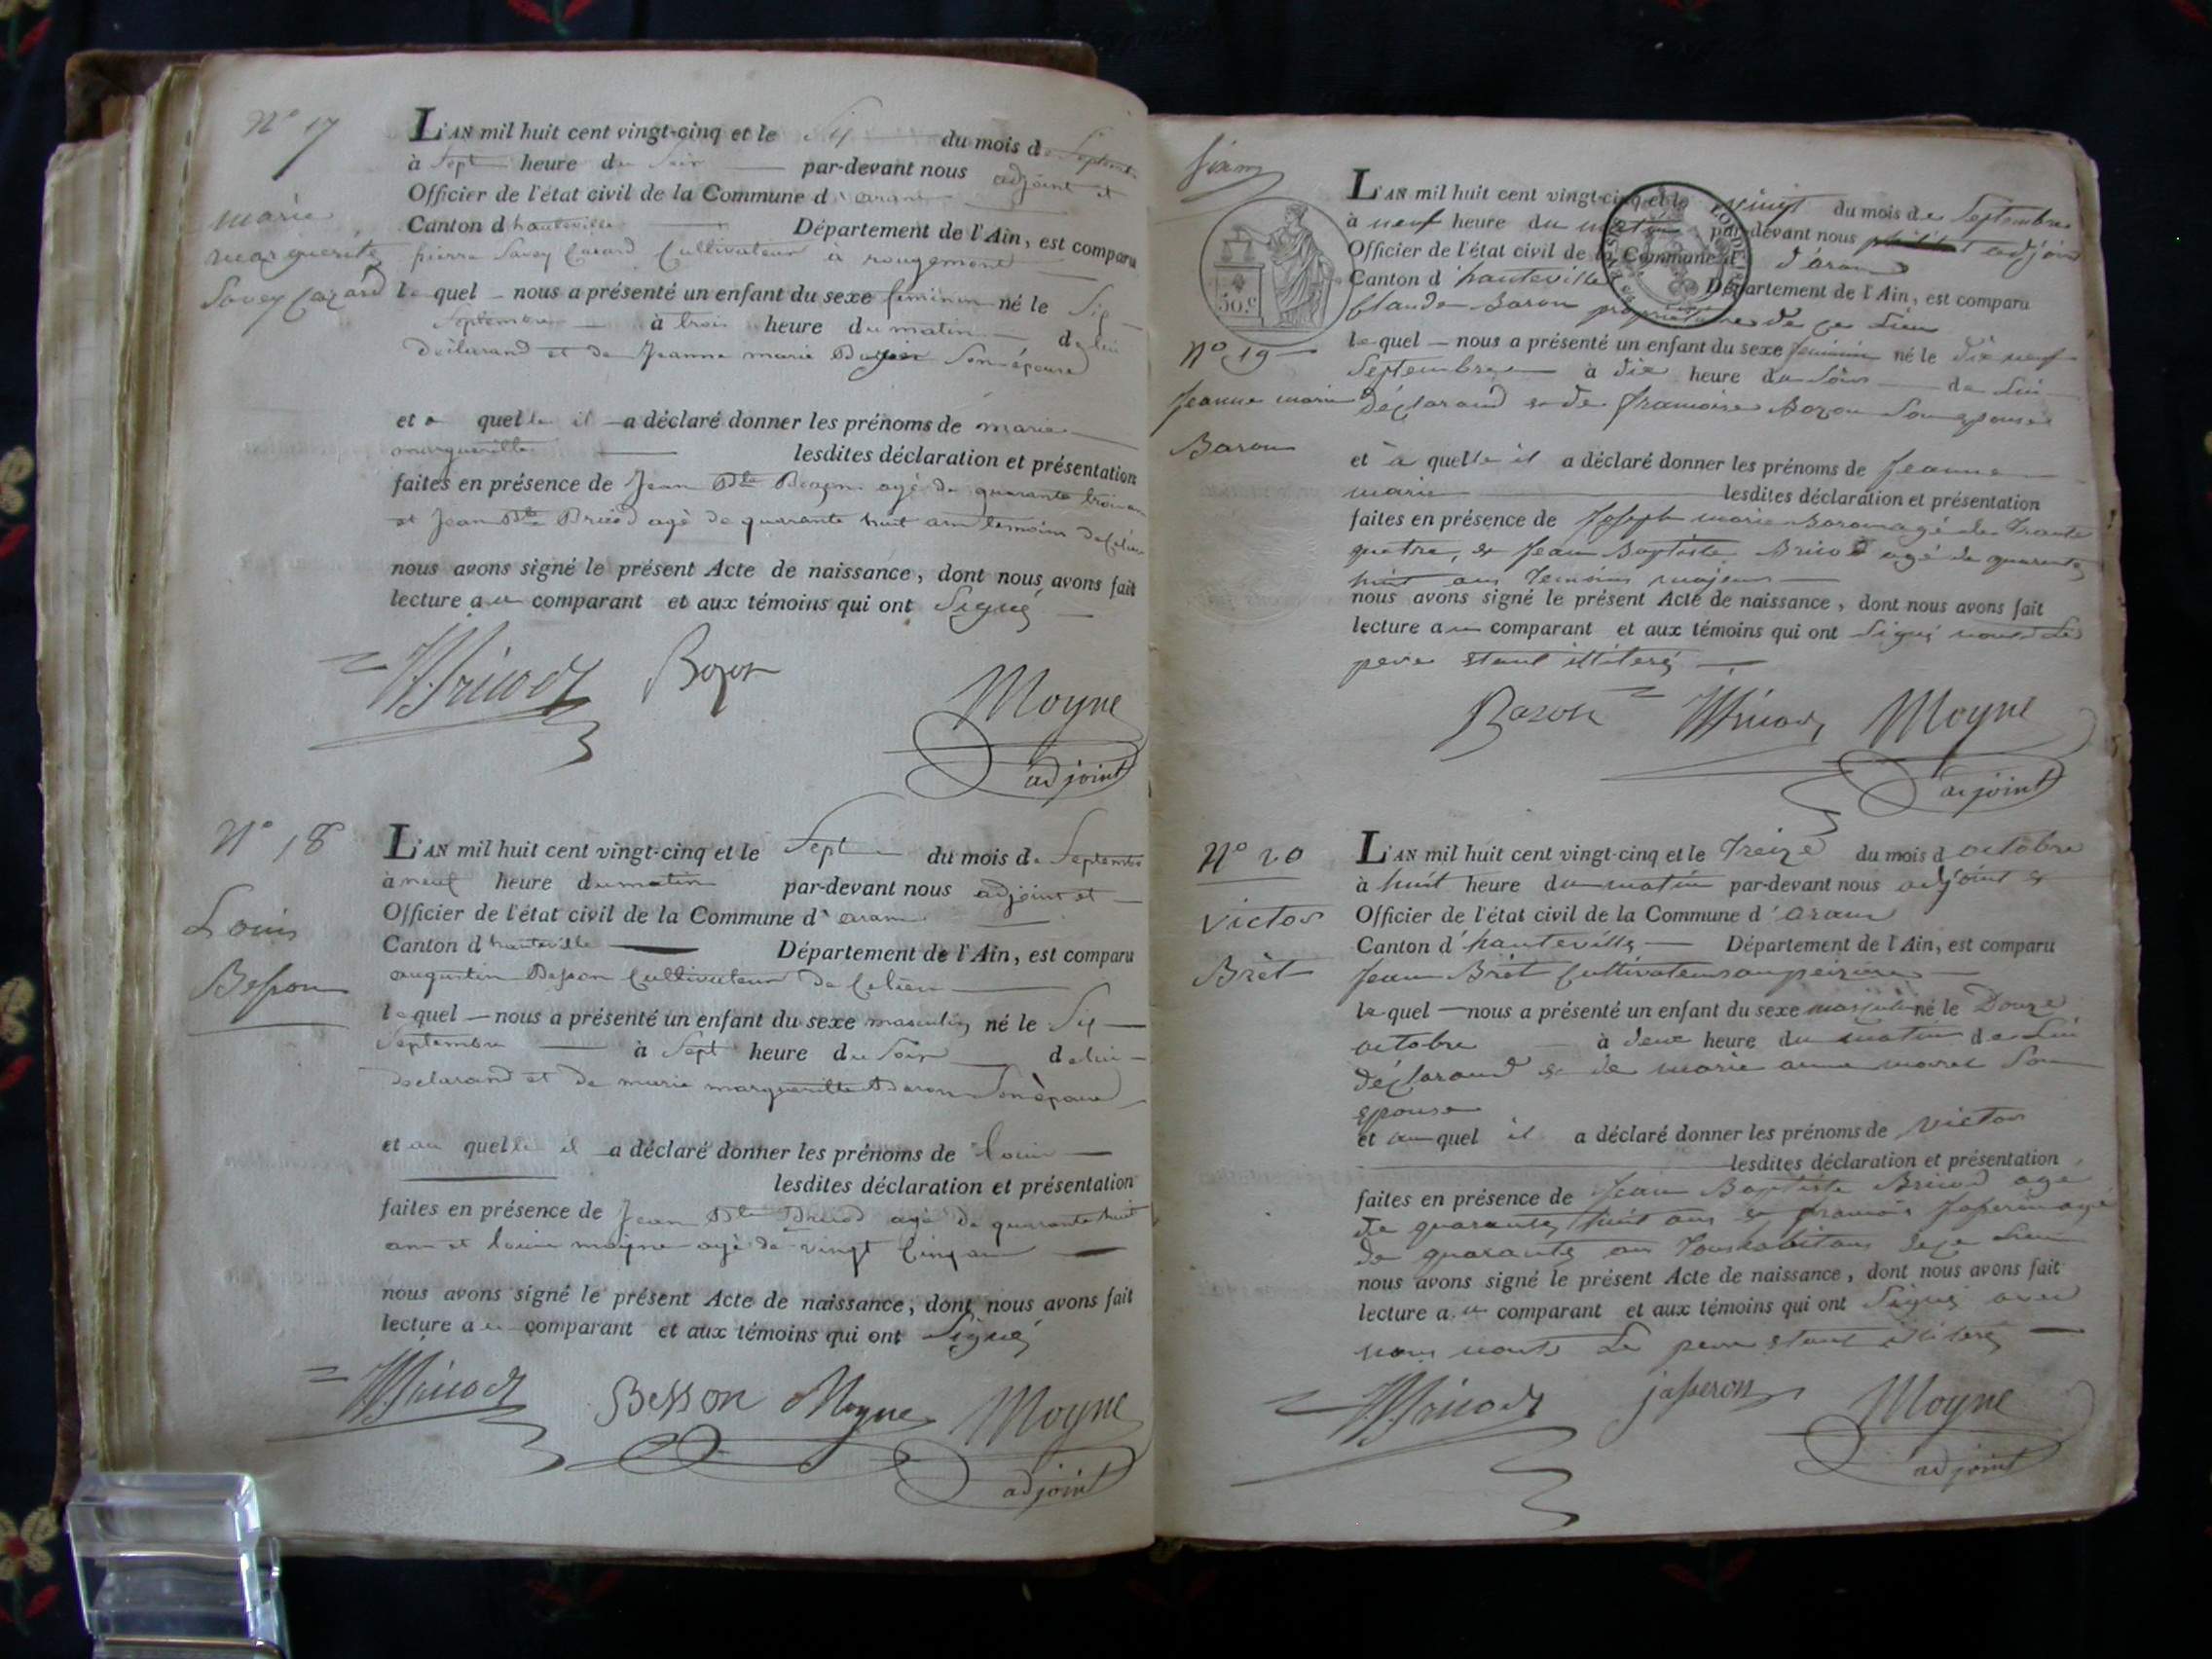 N° 17
marie
marguerite
Savey Cazard
L'AN mil huit cent vingt-cinq et le Six du mois de Septembre
à Sept heure du Soir par-devant nous adjoint et
Officier de l'état civil de la Commune d'aranc
Canton d hauteville Département de l'Ain, est comparu
pierre Savey Cazard Cultivateur à rougemont
lequel nous a présenté un enfant du sexe feminin né le Six
Septembre à trois heure du matin de lui
déclarand et de Jeanne marie son épouse
et a quelle il a déclaré donner les prénoms de marie
margueritte lesdites déclaration et présentation
faites en présence de Jean Bte Bozon agé de quarante trois ans
et Jean Bte Bricod agé de quarante huit ans temoins de ce lieu
nous avons signé le présent Acte de naissance, dont nous avons fait
lecture au comparant et aux témoins qui ont Signé
Bricod Bozon Moyne
adjoint
N° 18
Louis
Besson
L'AN mil huit cent vingt-cinq et le Sept du mois de Septembre
à neuf heure du matin par-devant nous adjoint et
Officier de l'état civil de la Commune d'aranc
Canton d hauteville Département de l'Ain, est comparu
augustin Besson Cultivateur de Ce lieu
lequel nous a présenté un enfant du sexe masculin né le Six
Septembre à Sept heure du Soir de lui
declarand et de marie margueritte Baron Son épouse
et au quelle il a déclaré donner les prénoms de louis
lesdites déclaration et présentation
faites en présence de Jean Bte Bricod agé de quarante huit
ans et louis moyne agé de vingt Cinq ans
nous avons signé le présent Acte de naissance, dont nous avons fait
lecture au comparant et aux témoins qui ont Signé
Bricod Besson Moyne Moyne
adjoint
50.c
N° 19
Jeanne marie
Baron
L'AN mil huit cent vingt-cinq et le vingt du mois de Septembre
à neuf heure du matin par-devant nous adjoint
Officier de l'état civil de la Commune d'aranc
Canton d'hauteville Département de l'Ain, est comparu
Claude Baron propriétaire de ce Lieu
lequel nous a présenté un enfant du sexe feminin né le dix neuf
Septembre à dix heure du Soir de Lui
déclarand et de francoise Bozon Son epouse
et à quelle il a déclaré donner les prénoms de Jeanne
marie lesdites déclaration et présentation
faites en présence de Joseph marie Baron agé de trante
quatre, et Jean Baptiste Bricod agé de quarante
huit ans temoins majeurs
nous avons signé le présent Acte de naissance, dont nous avons fait
lecture au comparant et aux témoins qui ont Signé non Le
pere étant illiteré
Baron Bricod Moyne
adjoint
N° 20
Victor
Brêt
L'AN mil huit cent vingt-cinq et le treize du mois d octobre
à huit heure du matin par-devant nous adjoint et
Officier de l'état civil de la Commune d'aranc
Canton d'hauteville Département de l'Ain, est comparu
Jean Brêt Cultivateur
lequel nous a présenté un enfant du sexe masculin né le Douze
octobre à deux heure du matin de Lui
déclarand et de marie anne Son
epouse
et au quel il a déclaré donner les prénoms de Victor
lesdites déclaration et présentation
faites en présence de Jean Baptiste Bricod agé
de quarante huit ans et francois Jasseron agé
de quarante ans tous habitans de ce Lieu
nous avons signé le présent Acte de naissance, dont nous avons fait
lecture au comparant et aux témoins qui ont Signé avec
nous Le pere étant illiteré
Bricod jasseron Moyne
adjoint